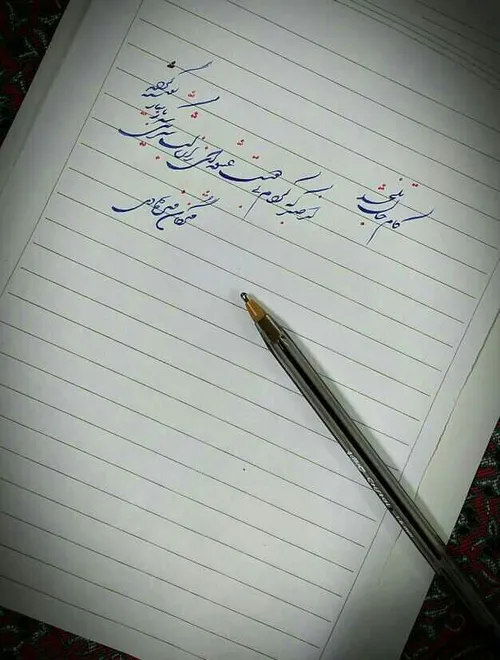 کام جان تلخ شد از صبر که کردم بی دوست عشوه‌ای زان لب شیرین شکربار بیار